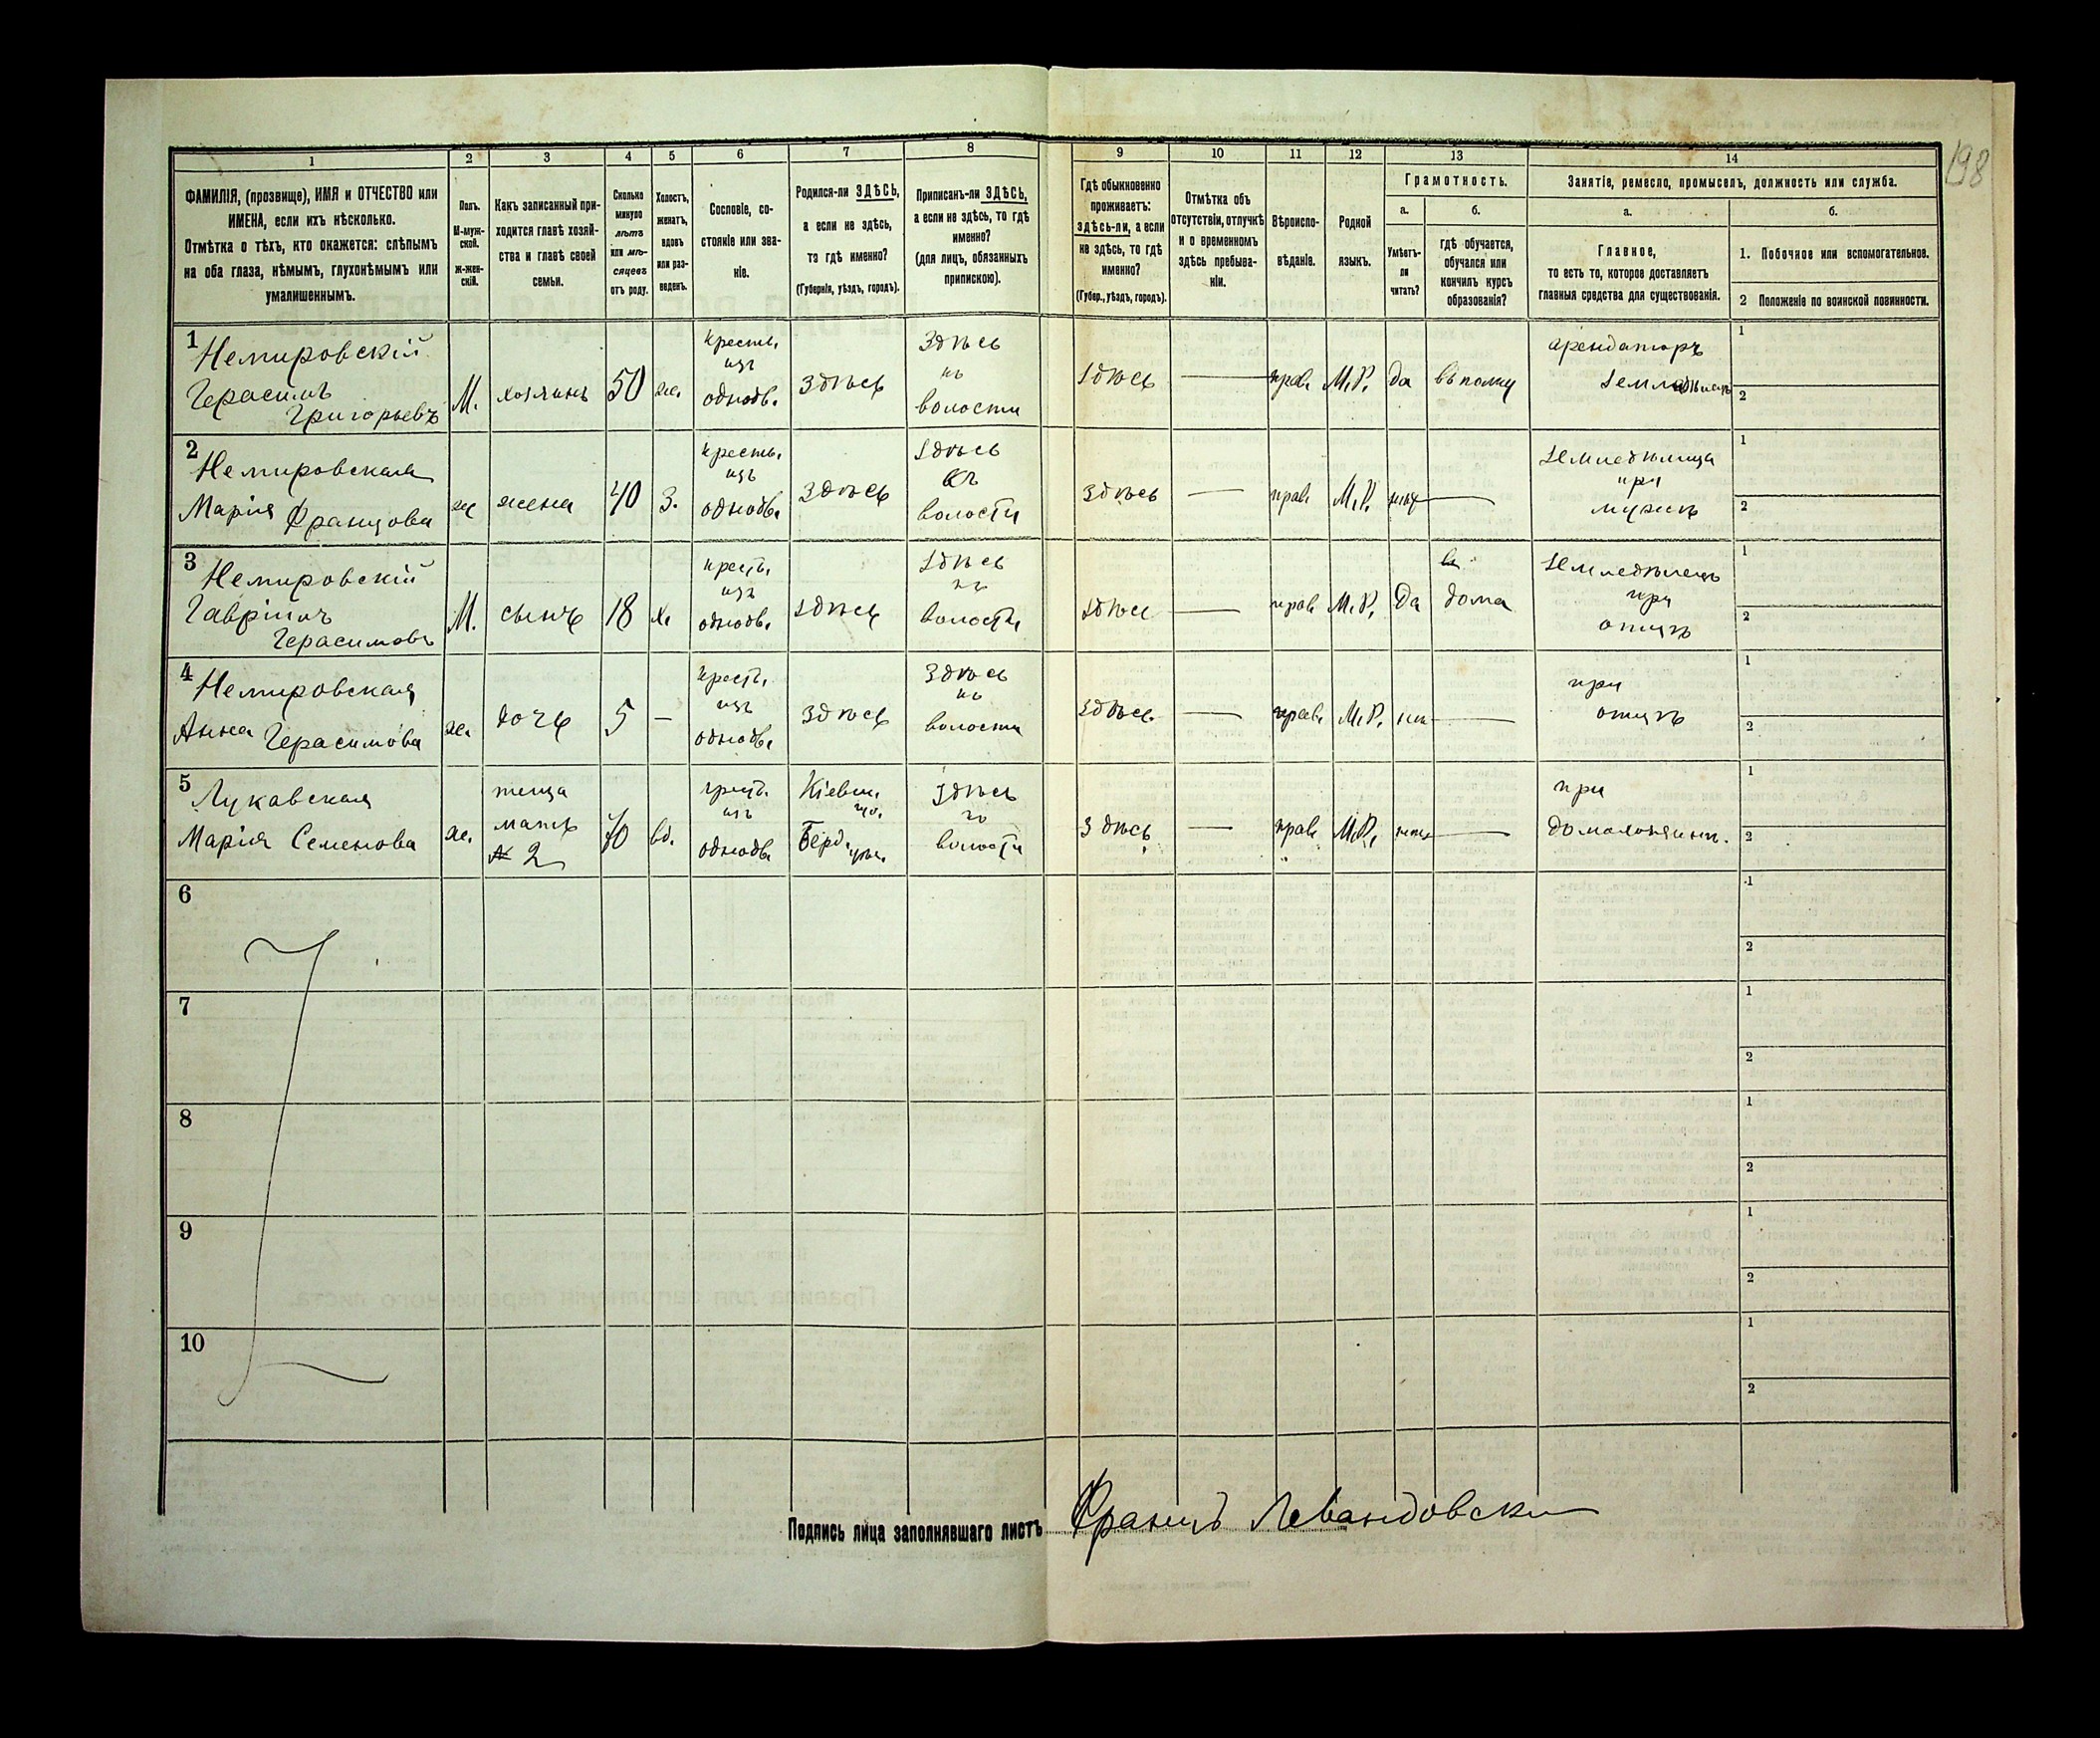 198
1 2 3 4 5 6 7 8 9 10 11 12 13 14
ФАМИЛІЯ, (прозвище), ИМЯ и ОТЧЕСТВО или
ИМЕНА, если ихъ нѣсколько.
Отмѣтка о тѣхъ, кто окажется: слѣпымъ
на оба глаза, нѣмымъ, глухонѣмымъ или
умалишеннымъ.
Полъ.
М-муж-
ской.
ж-жен-
скій.
Какъ записанный при-
ходится главѣ хозяй-
ства и главѣ своей
семьи.
Сколько
минуло
лѣтъ
или мѣ-
сяцевъ
отъ роду.
Холостъ,
женатъ,
вдовъ
или раз-
веденъ.
Сословіе, со-
стояніе или зва-
ніе.
Родился-ли ЗДѢСЬ,
а если не здѣсь,
то гдѣ именно?
(Губернія, уѣздъ, городъ).
Приписанъ-ли ЗДѢСЬ,
а если не здѣсь, то гдѣ
именно?
(для лицъ, обязанныхъ
припискою).
Гдѣ обыкновенно
проживаетъ:
здѣсь-ли, а если
не здѣсь, то гдѣ
именно?
(Губер., уѣздъ, городъ).
Отмѣтка объ
отсутствіи, отлучкѣ
и о временномъ
здѣсь пребыва-
ніи.
Вѣроиспо-
вѣданіе.
Родной
языкъ.
Грамотность.
а.
Умѣетъ-
ли
читать?
б.
гдѣ обучается,
обучался или
кончилъ курсъ
образованія?
Занятіе, ремесло, промыселъ, должность или служба.
а.
Главное,
то есть то, которое доставляетъ
главныя средства для существованія.
б.
1. Побочное или вспомогательное.
2 Положеніе по воинской повинности.
1
Немировскій
Герасимъ
Григорьевъ
М.
хозяинъ
50
же.
крестьь.
изъ
однодв.
здѣсь
Здѣсь
къ
волости
здѣсь
—
прав.
М.Р.
да
въ полку
арендаторъ
1
2
2
Немировская
Марія Францова
ж
жена
40
З.
крестьь.
изъ
однодв.
здѣсь
здѣсь
въ
волости
здѣсь
—
прав.
М.Р.
нѣт
—
земледѣлица
при
мужѣ
1
2
3
Немировскій
Гавріилъ
Герасимовъ
М.
сынъ
18
х.
крест.
изъ
однодв.
здѣсь
здѣсь
къ
волости
здѣсь
—
прав.
М.Р.
да
дома
земледѣлецъ
при
отцѣ
1
2
4
Немировская
Анна Герасимова
ж.
дочь
5
—
крест.
изъ
однодв.
здѣсь
здѣсь
къ
волости
здѣсь
—
прав.
М.Р.
—
при
отцѣ
1
2
5
Лукавская
Марія Семенова
ж.
теща
мать
№ 2
70
вд.
крест.
изъ
однодв.
Кіевск.
губ.
Берд. уѣз.
здѣсь
къ
волости
здѣсь
—
прав.
М.Р.
—
при
домохозяинѣ.
1
2
6
1
2
7
1
2
8
1
2
9
1
2
10
1
2
Подпись лица заполнявшаго листъ Францъ Левандовски